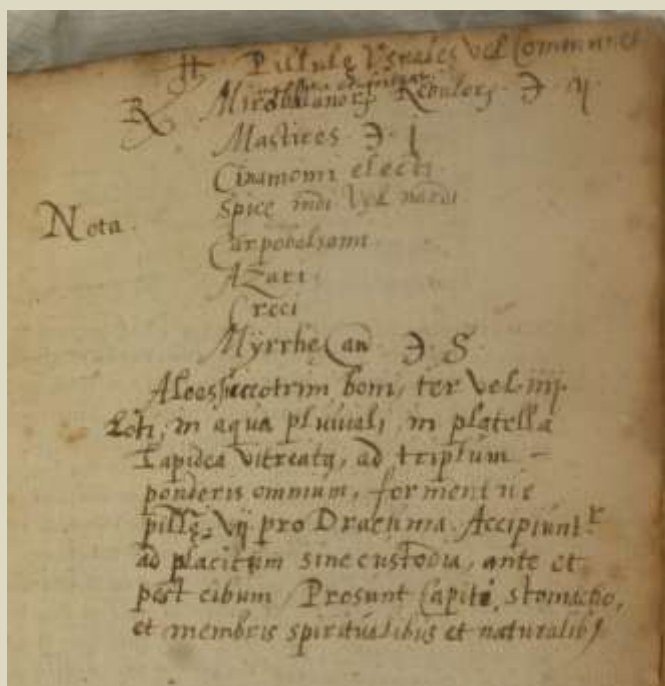 Pillulę Vsuales vel Communes
℞ Mirobalanorꝝ Kebulorꝝ ℈ ij
Mastices ℈ j
Cinamomi electi
Spice indi vel nardi
Nota.
Carpobalsami.
Azari.
Croci
Myrrhę an ℈ S
Aloes succotrini boni, ter vel iiij.
Loti, in aqua pluuiali, in platella
Lapidea vitreata, ad triplum -
ponderis omnium, formentur
pillę, vij pro Drachma. Accipiuntr
ad placitum sine custodia, ante et
post cibum. Prosunt Capiti, stomacho,
et membris spiritualibus et naturalibꝰ